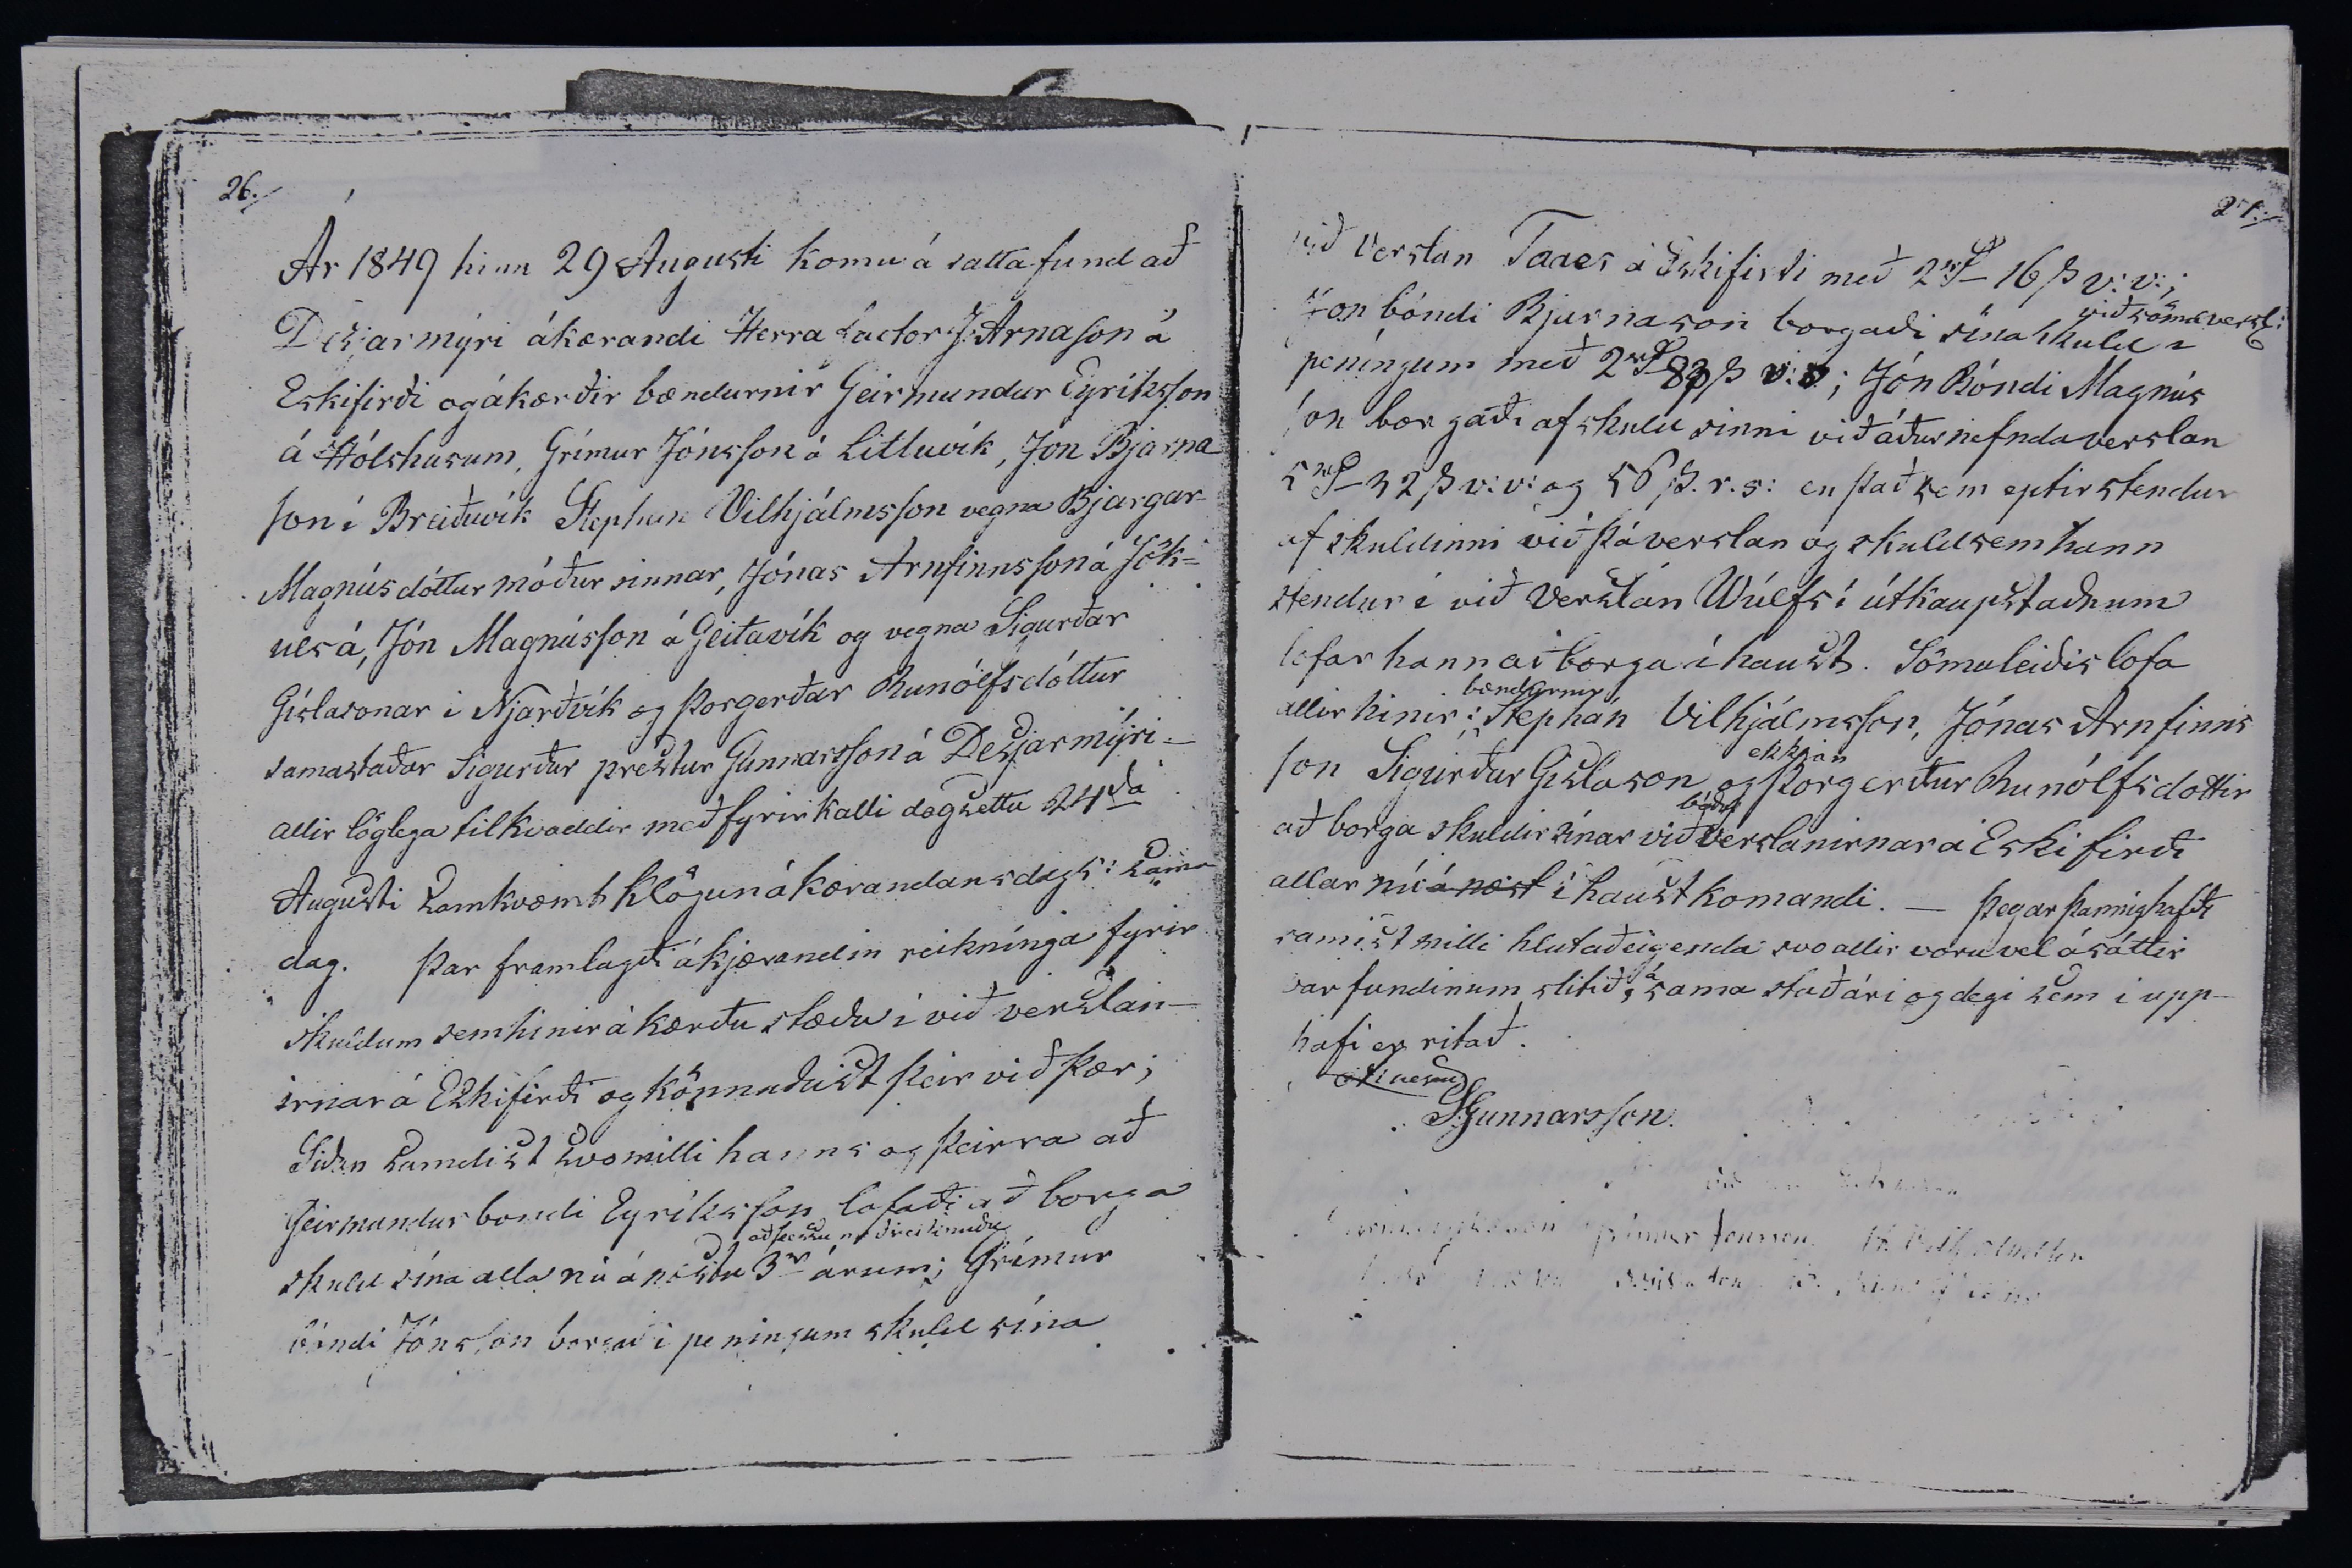 26.
Ár 1849 hinn 29 Augusti komu á sattafund að
Desjarmýri ákærandi Herra Factor J. Arnason á
Eskifirði og ákærðir bændurnir Geirmundur Eyríksson
á Hólshusum, Grímur Jónsson á Litluvík, Jon Bjarna-
son í Breiðuvík Stephan Vilhjálmsson vegna Bjargar
Magnúsdóttur móður sinnar, Jónas Arnfinnsson á Jök=
ulsá, Jón Magnússon á Geitavík og vegna Sigurðar
Gíslasonar i Njarðvík og Þorgerðar Runólfsdóttur
samastaðar Sigurður prestur Gunnarsson á Desjarmýri-
allir löglega tilkvaddir með fyrirkalli dagsettu 24da
Augusti Samkvæmt klögun ákærandans dags: sama
dag. Þar framlagði ákjærandin reikninga fyrir
skuldum sem hinir ákærðu stæðu í við verslan-
irnar á Eskifirði og könnuðust þeir við þær;
Siðan samdist svo milli hanns og þeirra að
Geirmundur bondi Eyríksson lofaði að borga
að þessu meðreiknuðu
skuld sína alla nú á næstu 3r árum; Grímur
bóndi Jónsson borgaði peningum skuld sína
27.
við verslan Taaes á Eskifirði með 2rd 16 ß v: v:;
við sömu versl:
Jon bóndi Bjarnason borgaði sína skuld í
peníngum með 2rd 83 ß v: v; Jón Bóndi Magnús
son borgaði af skuld sinni við áðurnefnda verslan
5rd 32 ß v: v: og 56 ß. r. s: en það sem eptir stendur
af skuldinni við þá verslan og skuld sem hann
stendur í við Verslan Wúlfs í útkaupstaðnum
lofar hann að borga í haust. Sömuleiðis lofa
bændurnir
allir hinir: Stephán Vilhjálmsson, Jónas Arnfinns
ekkjan
son Sigurður Gíslason og Þorgerður Runólfsdottir
báðar
að borga skuldir sínar við verslanirnar á Eskifirði
allar nú á næst í haustkomandi. — Þegar þannig hafði
samist milli hlutaðeigenda svo allir voru vel ásáttir
á
var fundinum slitið, sama stað ári og degi sem i upp-
hafi er ritað.
S Gunnarsson.
Grimur Jonsson